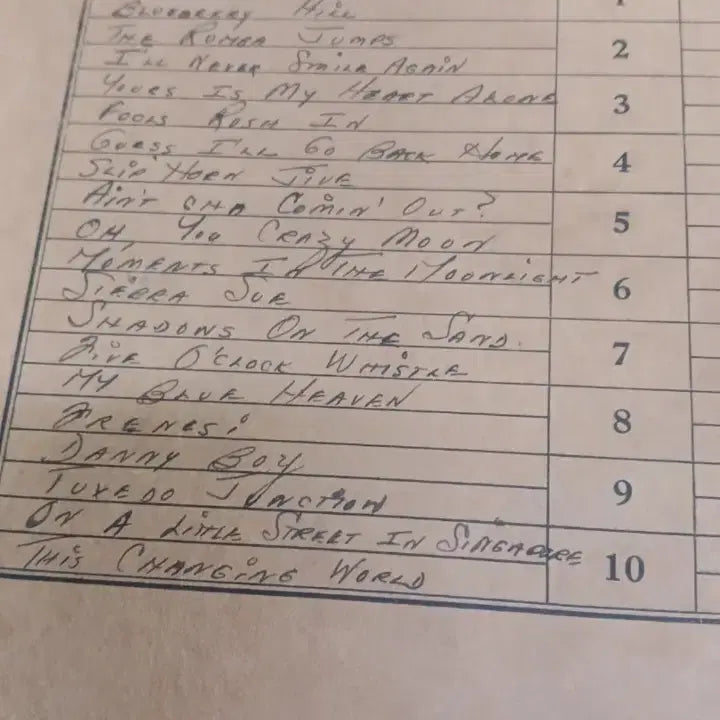 BLUEBERRY HILL
1
THE RUMBA JUMPS
2
I'LL NEVER SMILE AGAIN
YOURS IS MY HEART ALONE
3
FOOLS RUSH IN
GUESS I'LL GO BACK HOME
4
SLIP HORN JIVE
AIN'T CHA COMIN' OUT?
5
OH, YOU CRAZY MOON
MOMENTS IN THE MOONLIGHT
6
SIERRA SUE
SHADOWS ON THE SAND.
7
FIVE O'CLOCK WHISTLE
MY BLUE HEAVEN
8
FRENESI
DANNY BOY
9
TUXEDO JUNCTION
ON A LITTLE STREET IN SINGAPORE
10
THIS CHANGING WORLD